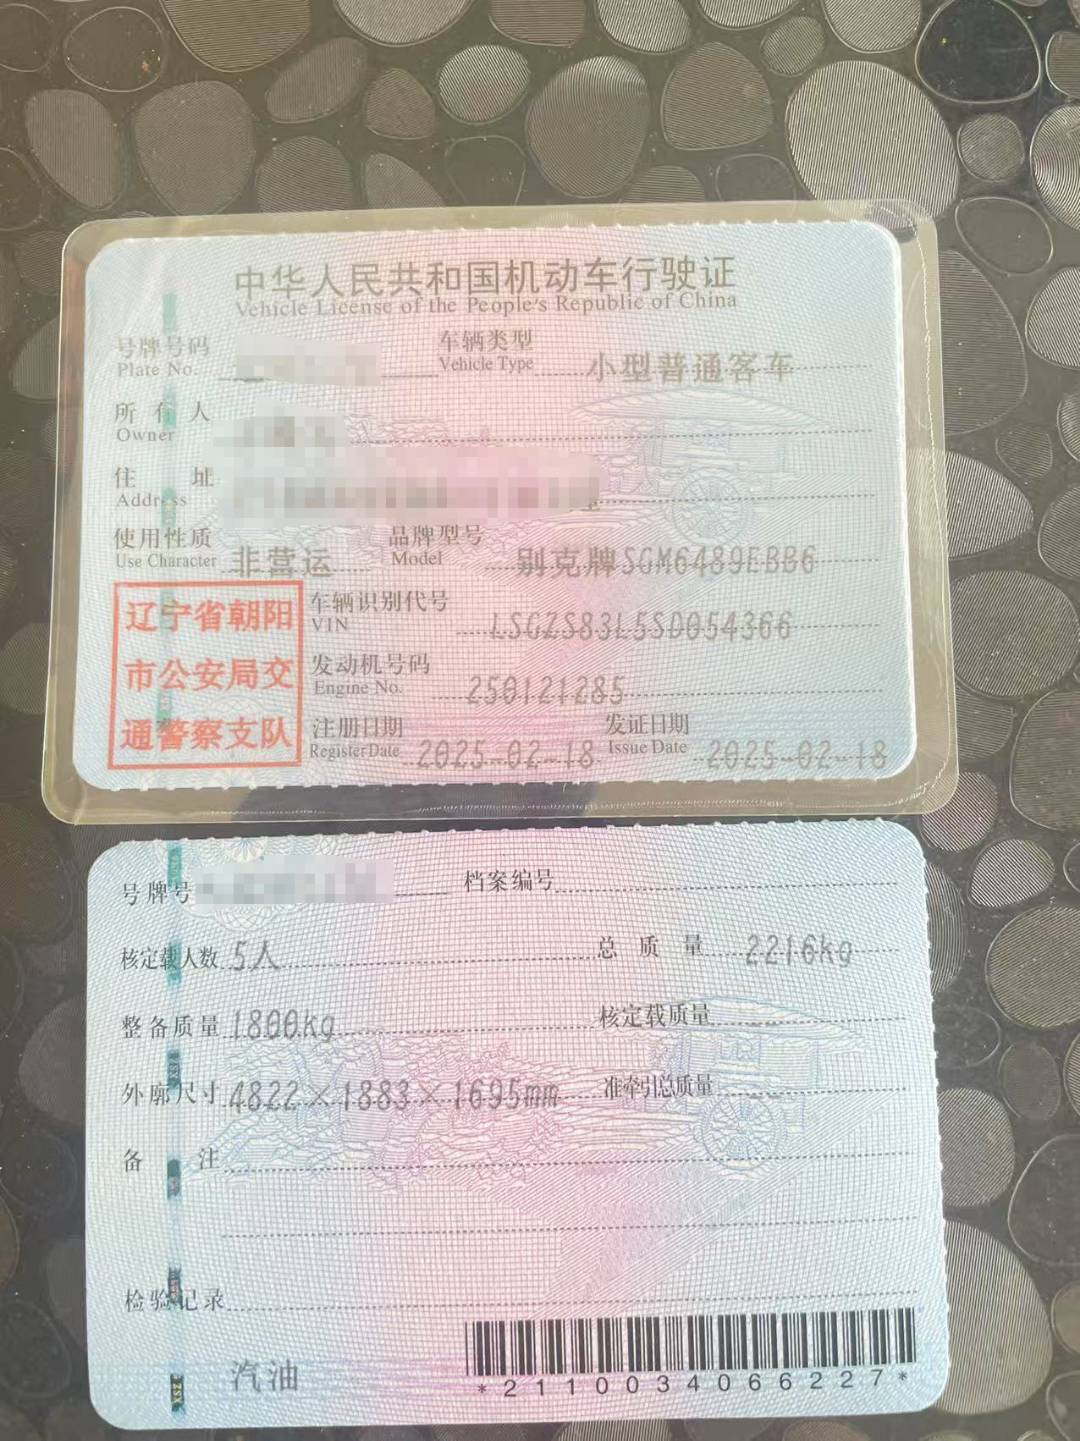 中华人民共和国机动车行驶证
Vehicle License of the People's Republic of China
号牌号码 车辆类型 小型普通客车
Plate No. Vehicle Type
所有人
Owner
住址
Address
使用性质 非营运 品牌型号 别克牌SGM6489EBB6
Use Character Model
辽宁省朝阳
市公安局交
通警察支队
车辆识别代号 LSGZS83L5SD054366
VIN
发动机号码 250121285
Engine No.
注册日期 2025-02-18 发证日期 2025-02-18
Register Date Issue Date
号牌号 档案编号
核定载人数 5人 总质量 2216kg
整备质量 1800kg 核定载质量 --
外廓尺寸 4822×1883×1695mm 准牵引总质量 --
备注
检验记录
汽油
*2110034066227*